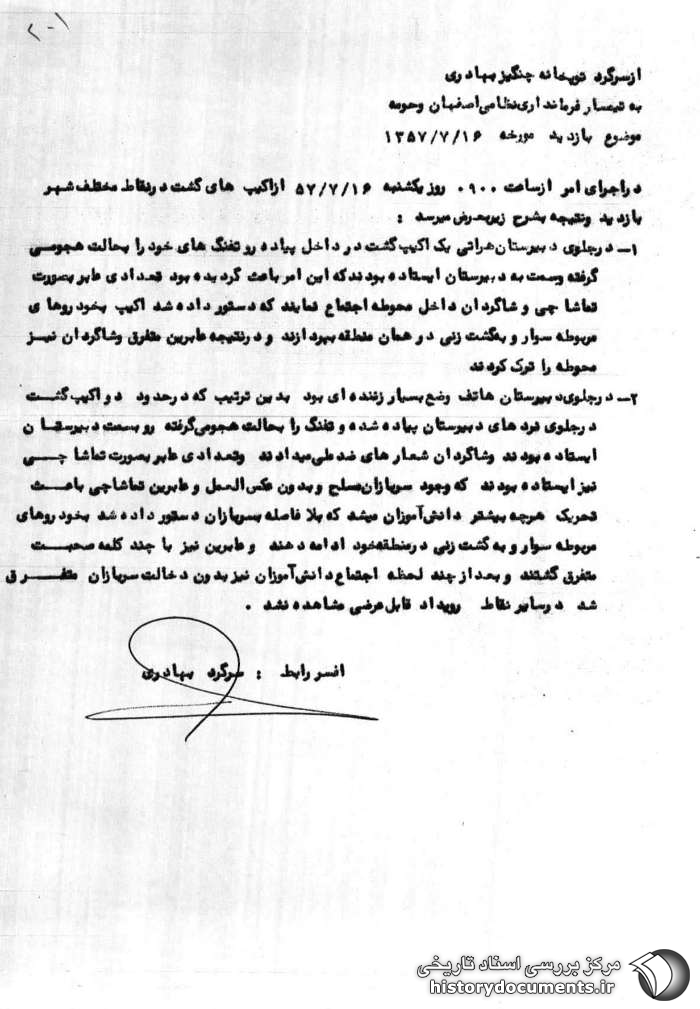 ۲-۱
از سرگرد توپخانه چنگیز بهادری
به تیمسار فرمانداری نظامی اصفهان وحومه
موضوع بازدید مورخه ۱۳۵۷/۷/۱۶
دراجرای امر ازساعت ۰۹۰۰ روز یکشنبه ۵۷/۷/۱۶ ازاکیپ های گشت درنقاط مختلف شهر
بازدید ونتیجه بشرح زیربعرض میرسد :
۱- درجلوی دبیرستان هراتی یک اکیپ گشت در داخل پیاده رو تفنگ های خود را بحالت هجومی
گرفته وسمت به دبیرستان ایستاده بودندکه این امرباعث گردیده بود تعدادی عابر بصورت
تماشاچی و شاگردان داخل محوطه اجتماع نمایند که دستور داده شد اکیپ بخودروهای
مربوطه سوار و به گشت زنی در همان منطقه بپردازند و درنتیجه عابرین متفرق وشاگردان نیز
محوطه را ترک کردند
۲- درجلوی دبیرستان هاتف وضع بسیار زننده ای بود بدین ترتیب که درحدود دو اکیپ گشت
درجلوی نرده های دبیرستان پیاده شده و تفنگ را بحالت هجومی گرفته رو بسمت دبیرستان
ایستاده بودند وشاگردان شعار های ضد ملی میدادند وتعدادی عابر بصورت تماشاچی
نیز ایستاده بودند که وجود سربازان مسلح و بدون عکس العمل و عابرین تماشاچی باعث
تحریک هرچه بیشتر دانش آموزان میشد که بلا فاصله بسربازان دستور داده شد بخودروهای
مربوطه سوار و به گشت زنی درمنطقه خود ادامه دهند و عابرین نیز با چند کلمه صحبت
متفرق گشتند و بعد از چند لحظه اجتماع دانش آموزان نیز بدون دخالت سربازان متفرق
شد درسایر نقاط رویداد قابل عرضی مشاهده نشد .
افسر رابط : سرگرد بهادری
مرکز بررسی اسناد تاریخی
historydocuments.ir